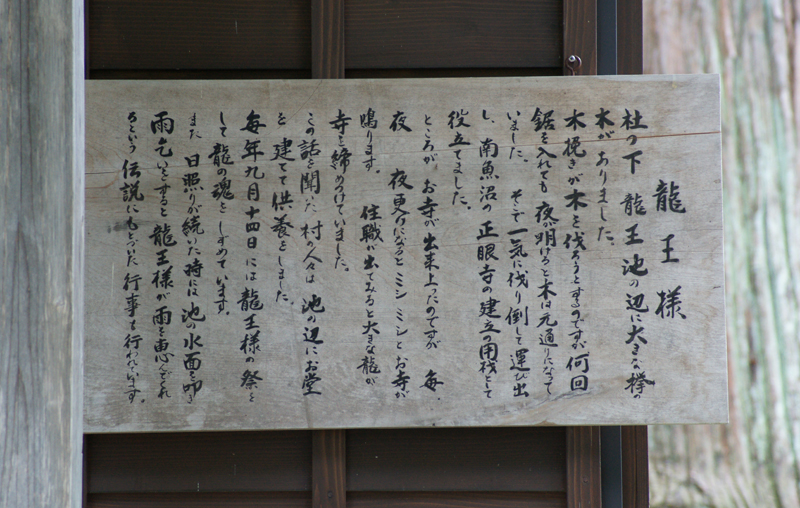 龍王様
杜の下 龍王池の辺に大きな欅の
木がありました。
木挽きが木を伐ろうとするのですが何回
鋸を入れても夜が明けると木は元通りになって
いました。 そこで一気に伐り倒して運び出
し、南魚沼の正眼寺の建立の用材として
役立てました。
ところが、お寺が出来上ったのですが 毎
夜 夜更けになるとミシミシとお寺が
鳴ります。 住職が出てみると大きな龍が
寺を締めつけていました。
この話を聞いた村の人々は 池の辺にお堂
を建てて供養をしました。
毎年九月十四日には龍王様の祭を
して龍の魂をしずめています。
また 日照りが続いた時には池の水面を叩き
雨乞いをすると龍王様が雨を恵んでくれ
るという伝説にもとづいた行事も行われています。